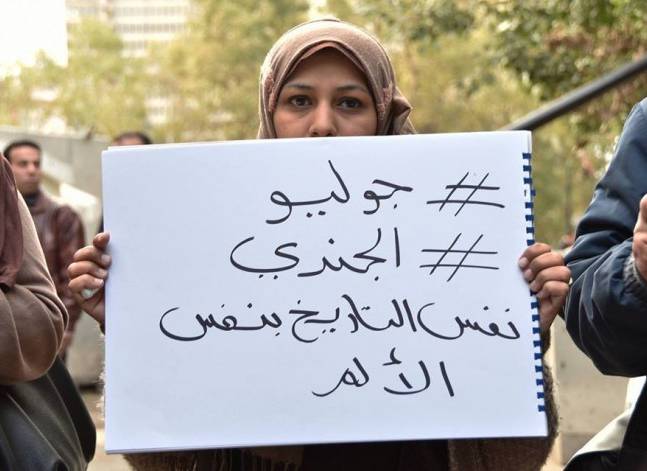 # جوليو
# الجندي
نفس التاريخ بنفس
الألم